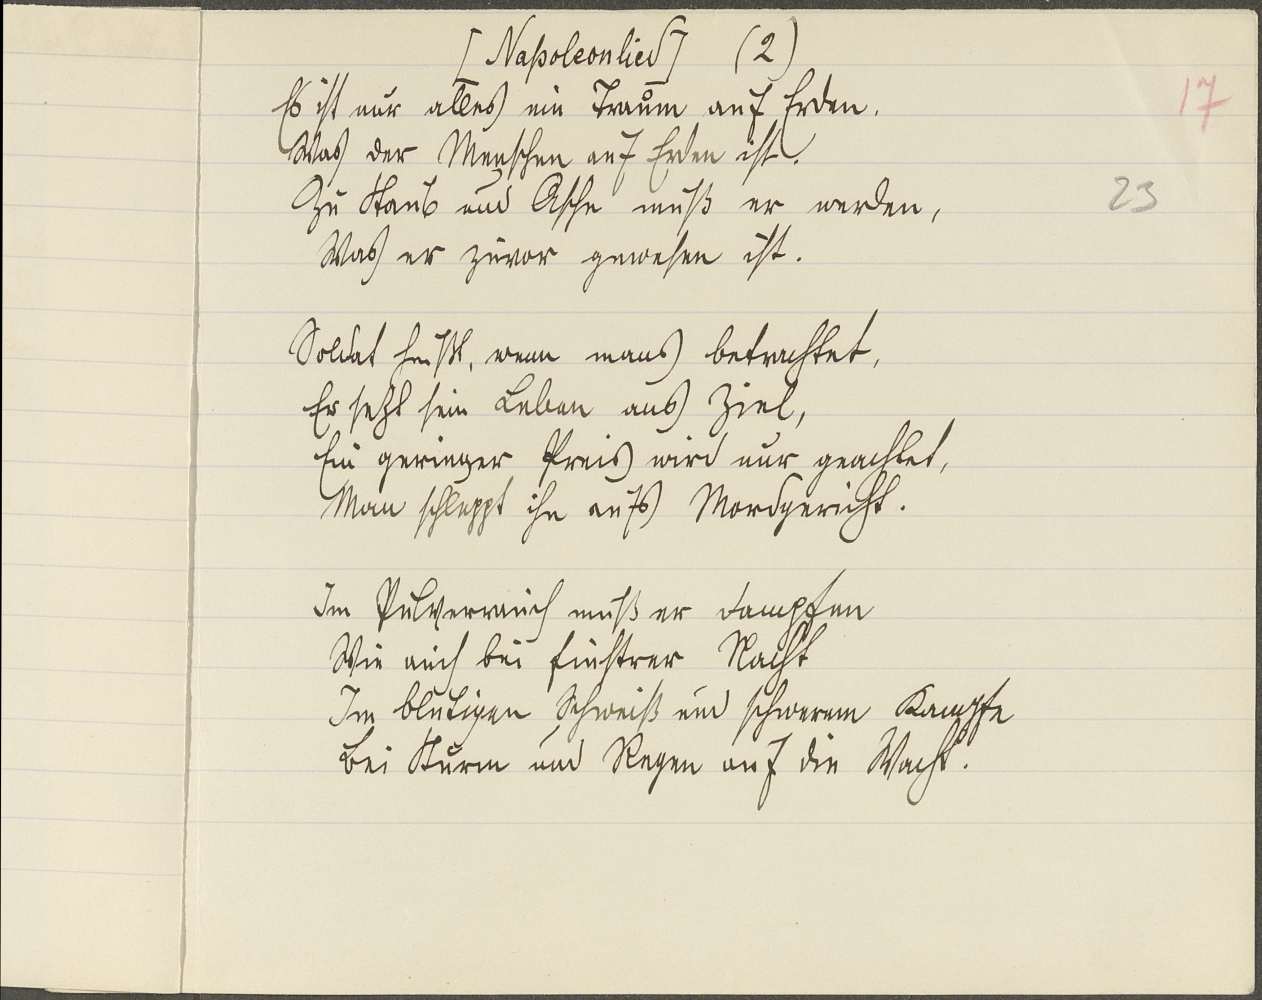 [Napoleonlied] (2)
Es ist nur alles ein Traum auf Erden.
17
Was der Menschen auf Erden ist.
Zu Staub und Asche muß er werden,
23
Was er zuvor gewesen ist.
Soldat heißt, wenn mans betrachtet,
Er setzt sein Leben aus Ziel,
Ein geringer Preis wird nur geachtet,
Man schleppt ihn aufs Mordgericht.
Im Pulverrauch muß er dampfen
Wie auch bei finstrer Nacht
Im blutigen Schweiß und schwerem Kampfe
Bei Sturm und Regen auf die Wacht.